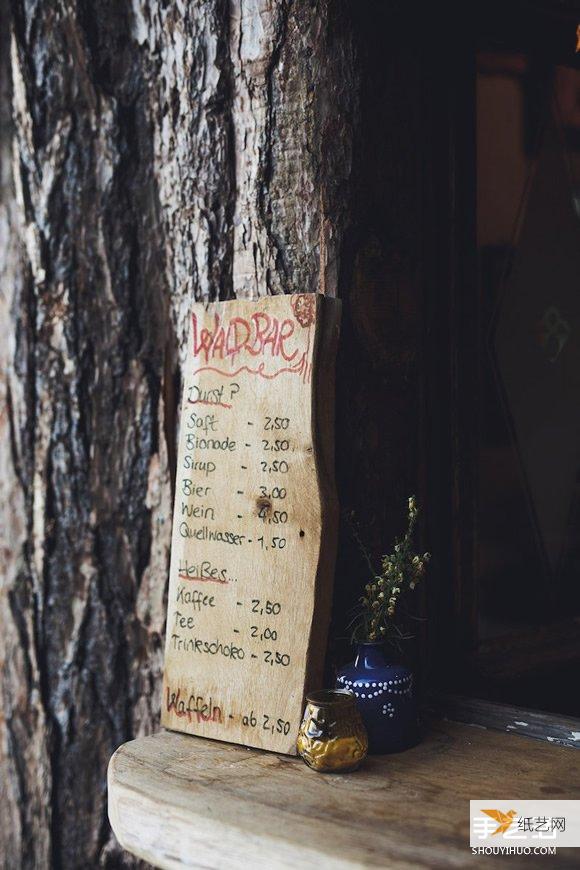 WALDBAR
Durst?
Saft - 2,50
Bionade - 2,50
Sirup - 2,50
Bier - 3,00
Wein - 4,50
Quellwasser - 1,50
Heißes...
Kaffee - 2,50
Tee - 2,00
Trinkschoko - 2,50
Waffeln - ab 2,50
纸艺网
SHOUYIHUO.COM